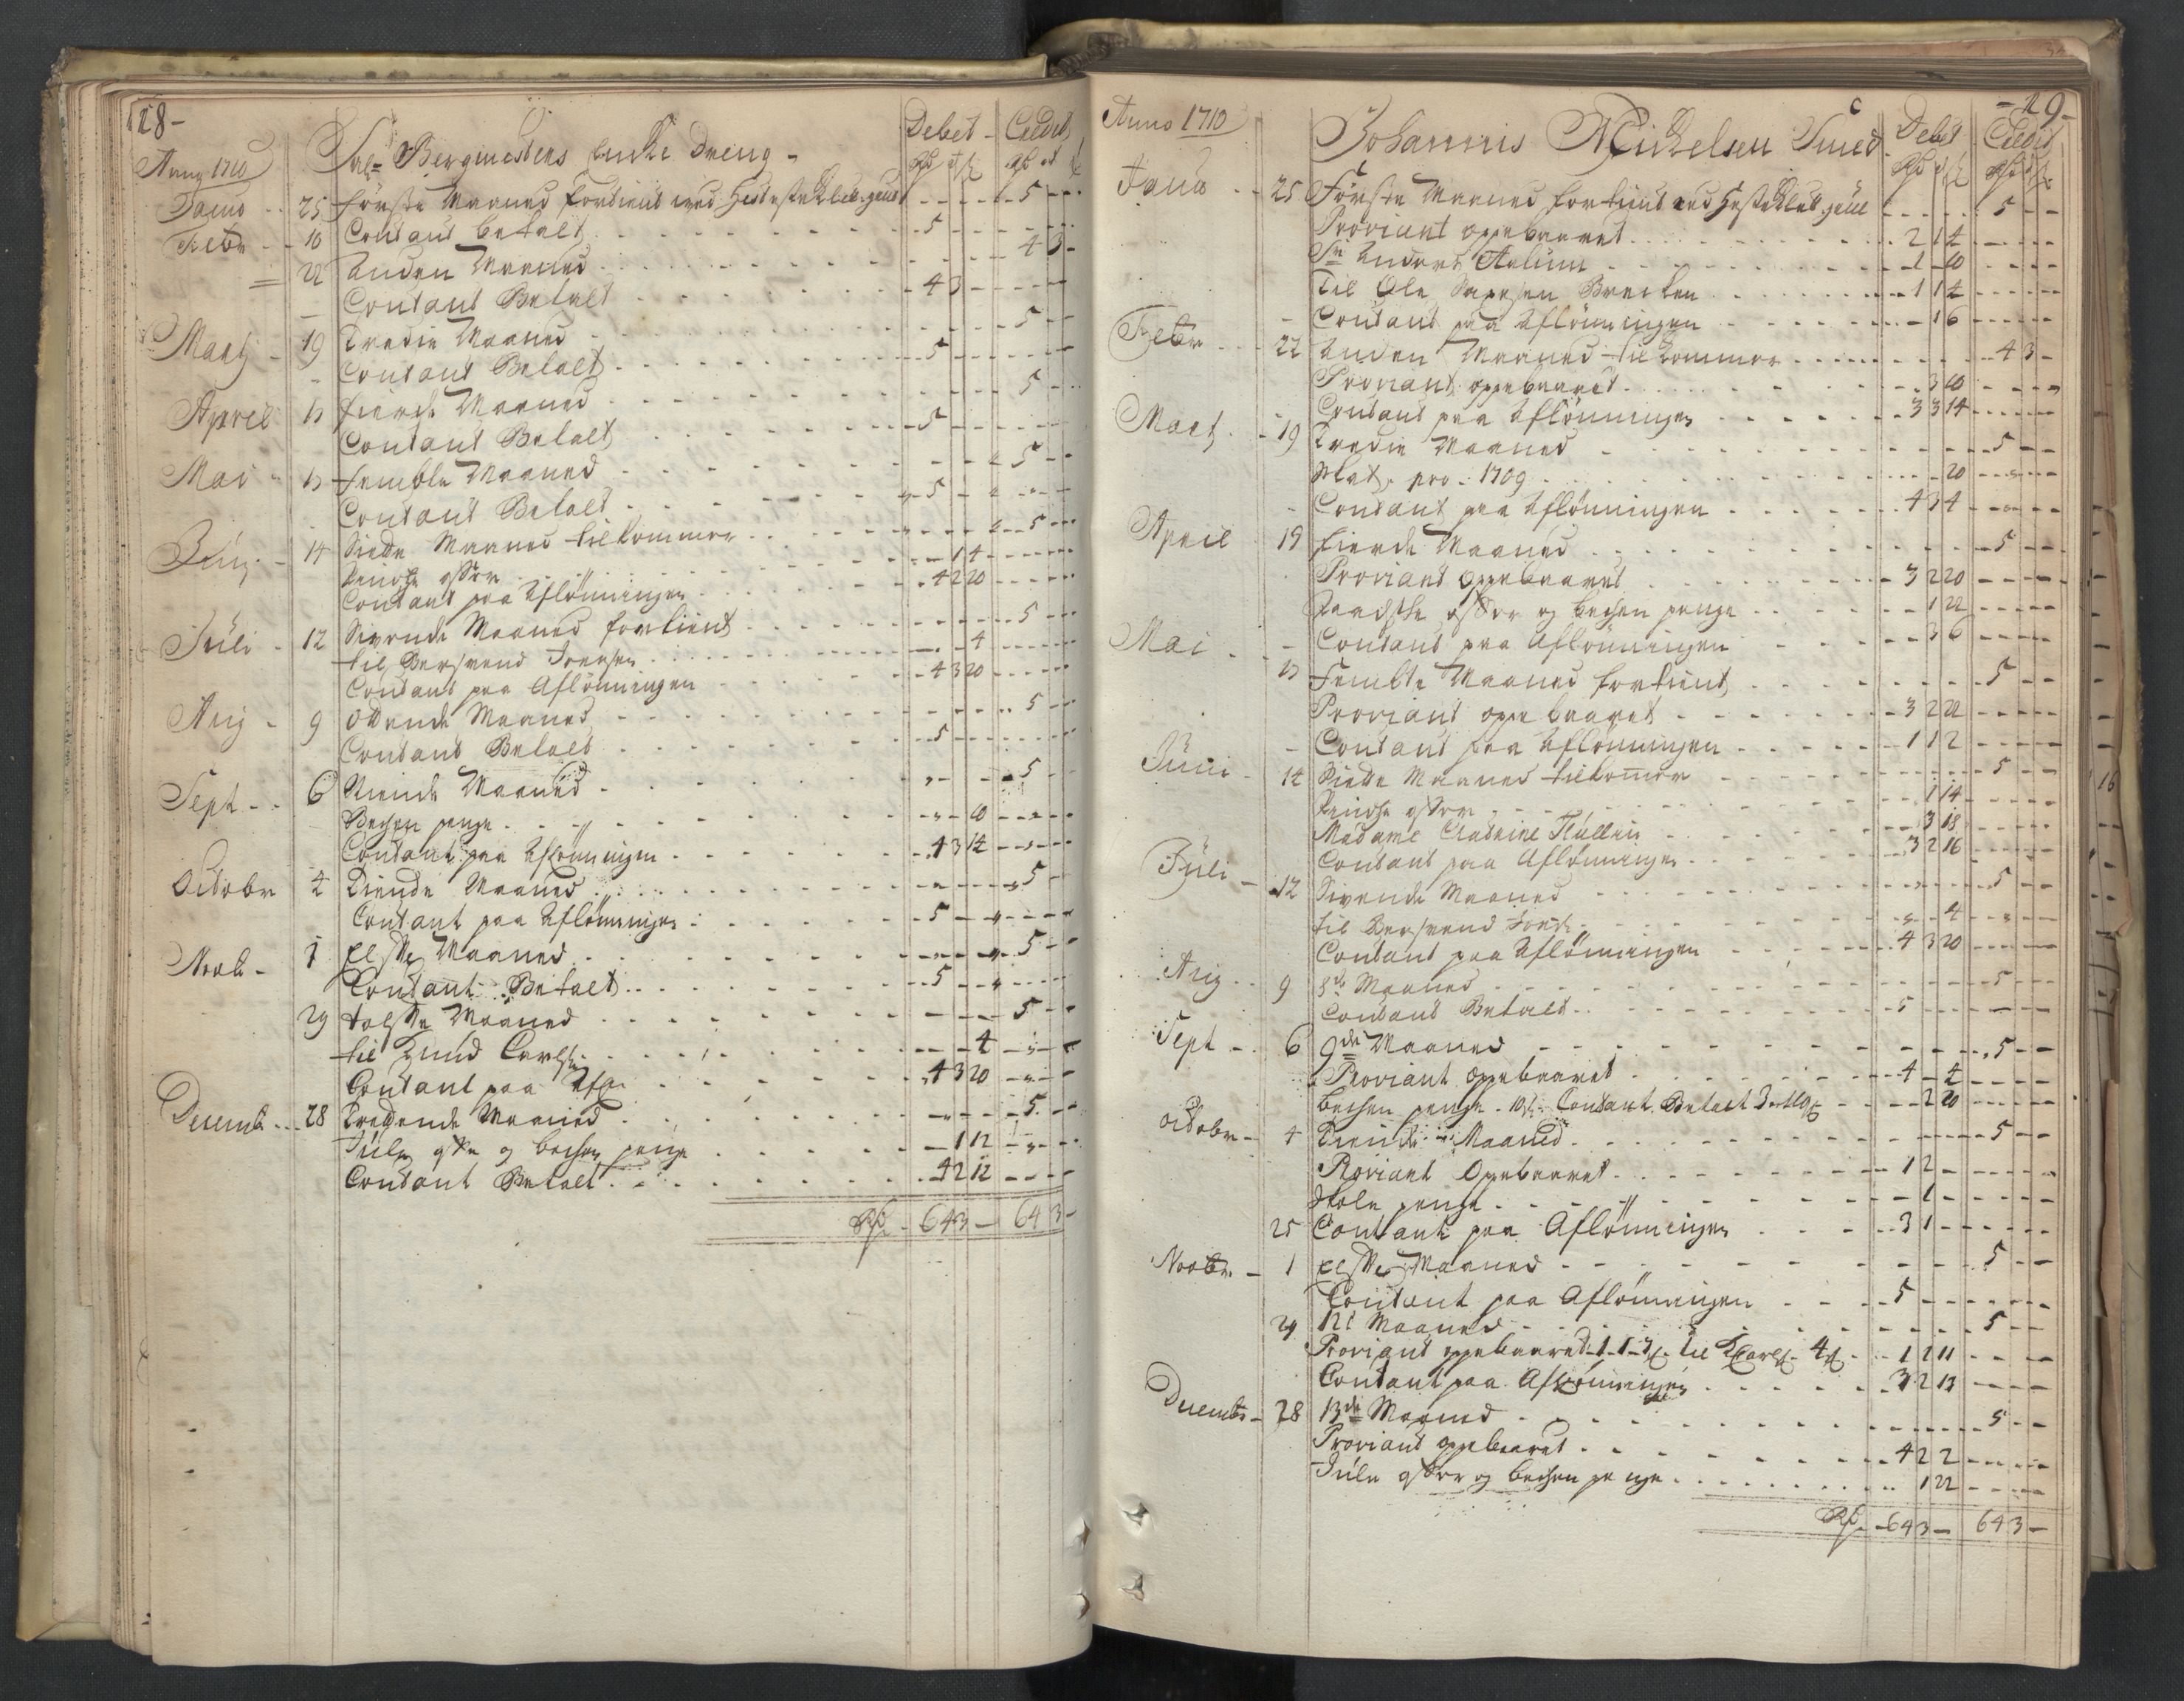 28-
Debet - Credit
Anno 1710
Sal= Bergmesters Encke Dreng -
Rd # ß Rd # ß
Janu - - 25 Første Maaned fortient med - - - - - 5 - - -
Febr - - 10 Contant betalt - - - 5 - - -
22 Anden Maaned - - - 4 3 -
Contant Betalt - - - 4 3 - - -
Martz - 19 Tredie Maaned - - - 5 - -
- Contant Betalt - - - 5 - - -
April Fierde Maaned - - - 5 - - -
Contant Betalt - - - 5 - - -
Mai - Fembte Maaned - - - 5 - -
Contant Betalt - - - 5 - - -
Junj - 14 Siette Maaned tilkommer - - - 5 - - -
Pindse offer - - - 1 4 - - -
Contant paa Aflønningen - - - 4 2 20 - - -
Juli - 12 Sivende Maaned fortient - - - 5 - - -
til Bersvend Joensen - - - 4 - - -
Contant paa Aflønningen - - - 4 3 20 - - -
Aug - 9 Ottende Maaned - - - 5 - - -
Contant Betalt - - - 5 - - -
Sept - - 6 Niende Maaned - - - 5 - -
Bechen penge - - - 10 - - -
Contant paa Aflønningen - - - 4 3 14 - - -
Octobr 4 Tiende Maaned - - - 5 - -
Contant paa Aflønningen - - - 5 - - -
Novb - 1 Elfte Maaned - - - 5 - -
Contant Betalt - - - 5 - - -
29 tolfte Maaned - - - 5 - -
til Knud Carls: - - - 4 - - -
Contant paa Afl: - - - 4 3 20 - - -
Decemb - - 28 Trettende Maaned - - - 5 - -
Jule offer og bechen penge - - - 1 12 - - -
Contant Betalt - - - 4 2 12 - - -
Rd - 64 3 - 64 3 -
- 29 -
Anno 1710
Johannis Mickelsen Smed Debet Credit
Rd # ß Rd # ß
Janu - - 25 Første Maaned fortient med - - - 5 - -
Proviant oppebaaret - - - 2 1 4 - - -
Sr Anders Aalum - - - 1 - 10 - - -
Til Ole Brecken - - - 1 1 4 - - -
- Contant paa Aflønningen - - - 1 6 - - -
Febr - - 22 Anden Maaned tilkommer - - - 4 3 -
Proviant oppebaaret - - - 3 10 - - -
- Contant paa Aflønningen - - - 3 3 14 - - -
Martz - - 19 Tredie Maaned - - - 5 - -
Skat pro: 1709 - - - 20 - - -
- Contant paa Aflønningen - - - 4 3 4 - - -
April 19 Fierde Maaned - - - 5 - -
Proviant Oppebaaret - - - 3 2 20 - - -
Paadsche offer og bechen penge - - - 1 22 - - -
- Contant paa Aflønningen - - - 3 6 - - -
Mai - - Fembte Maaned fortient - - - 5 - -
Proviant oppebaaret - - - 3 2 22 - - -
- Contant paa Aflønningen - - - 1 1 2 - - -
Juni - 14 Siette Maaned tilkommer - - - 5 - -
Pindse offer - - - 1 14 - - -
Madame Cathrine - - - 3 18 - - -
Contant paa Aflønningen - - - 3 2 16 - - -
Juli - 12 Sivende Maaned - - - 5 - -
til Bersvend Joens: - - - 4 - - -
Contant paa Aflønningen - - - 4 3 20 - - -
Aug - - 9 8de Maaned - - - 5 - -
Contant Betalt - - - 5 - - -
Sept - - 6 9de Maaned - - - 5 - -
Proviant Oppebaaret - - - 4 - 4 - - -
bechen penge - 10ß - Contant Betalt - - - 2 20 - - -
Octobr - 4 Tiende Maaned - - - 5 - -
Proviant Oppebaaret - - - 1 2 - - -
Skole penge - - - 1 - - -
25 Contant paa Aflønningen - - - 3 1 - - -
Novbr - 1 Elfte Maaned - - - 5 - -
Contant paa Aflønningen - - - 5 - - -
29 12t Maaned - - - 5 - -
Proviant oppebaaret 1 - 1 - 7ß til K Carls: 4ß - 1 2 11 - - -
Contant paa Aflønningen - - - 3 2 13 - - -
Decembr - 28 13de Maaned - - - 5 - -
Proviant oppebaaret - - - 4 2 2 - - -
Jule offer og bechen penge - - - 1 22 - - -
Rd - 64 3 - 64 3 -